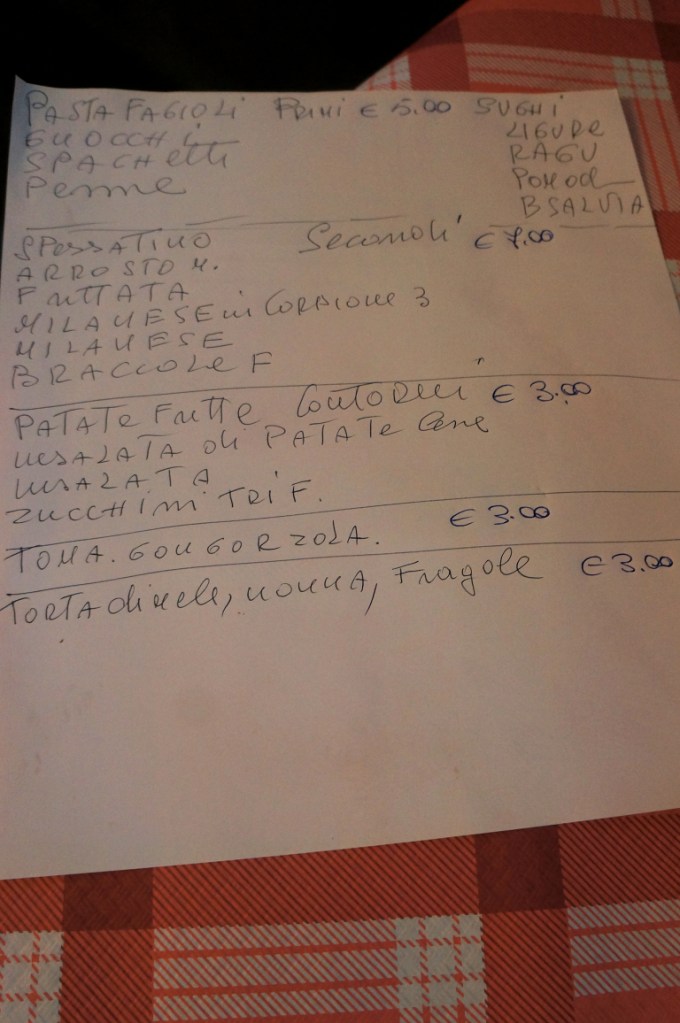 PASTA FAGIOLI PRIMI € 5.00 SUGHI
GNOCCHI LIGURE
SPAGHetti RAGU
Penne POMOD
B SALVIA
SPESSATINO Secondi € 7.00
ARROSTO M.
FRITTATA
MILANESE in CARPIONE 3
MILANESE
BRACCIOLE F
PATATE Fritte Contorni € 3.00
INSALATA di PATATE Cene
INSALATA
ZUCCHINI TRIF.
TOMA. GONGORZOLA. € 3.00
TORTA di mele, NONNA, Fragole € 3.00